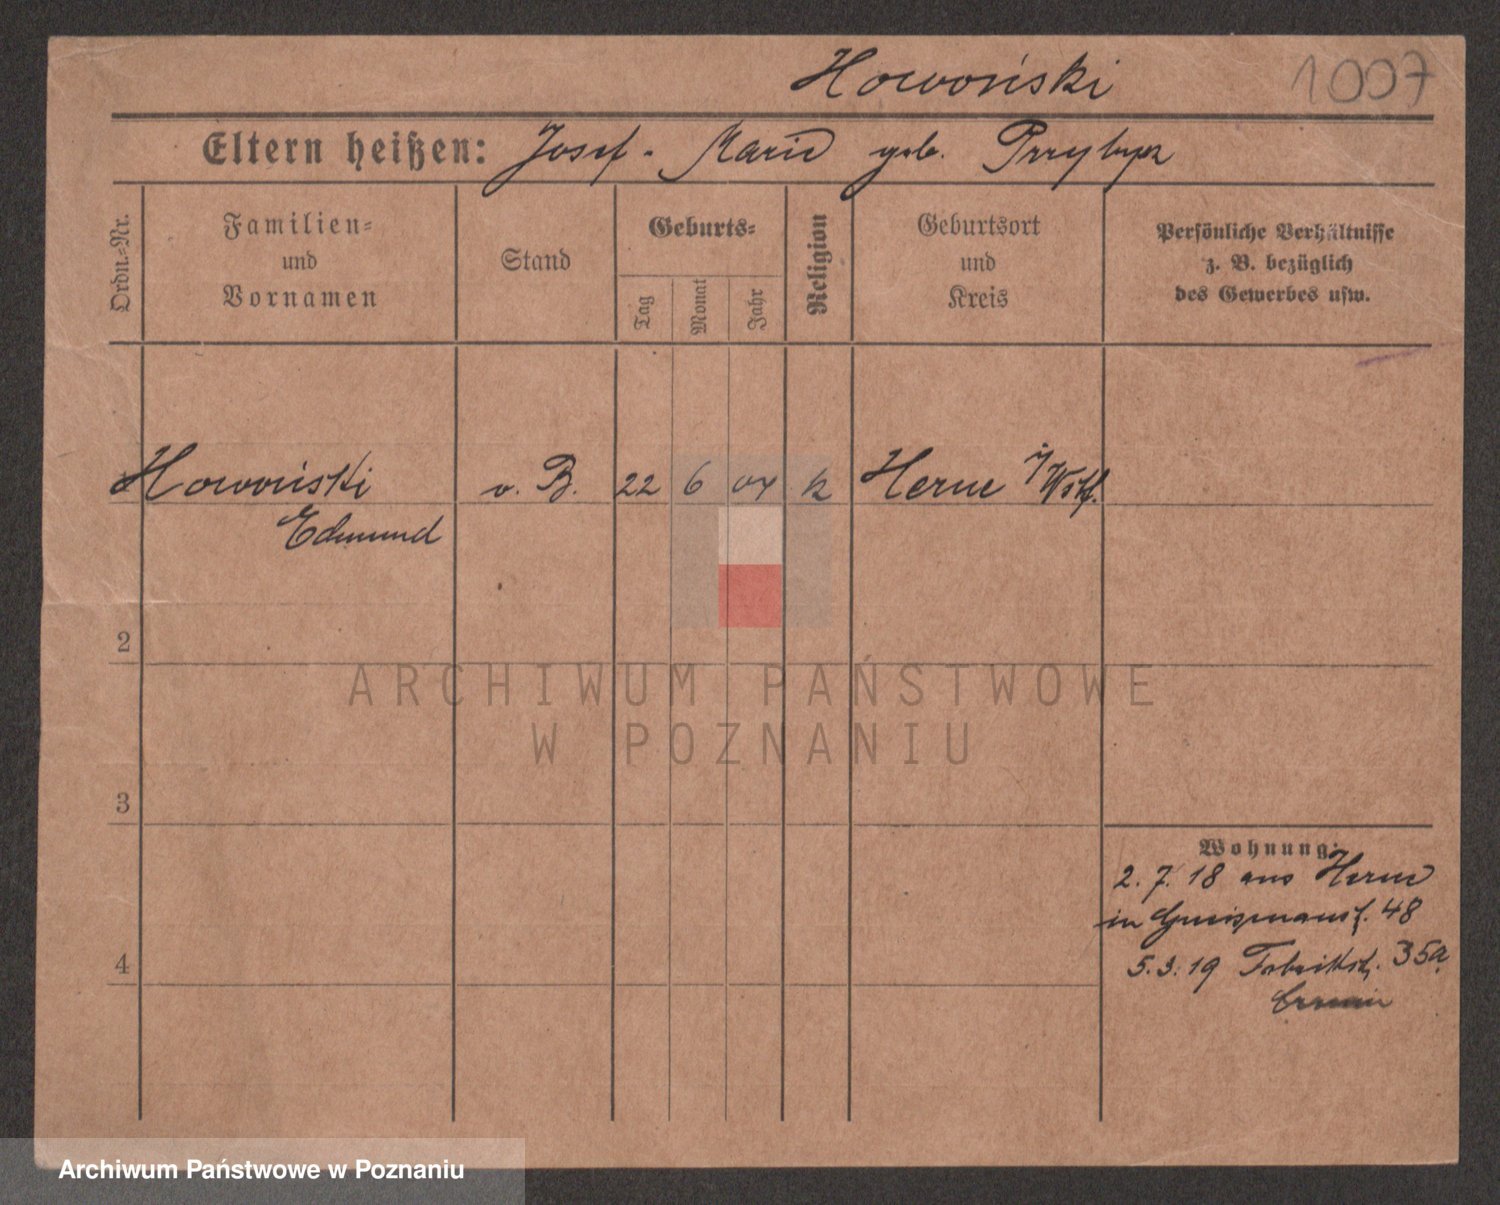 Howoński 1007
Eltern heißen: Josef - Marie geb. Przybysz
Ordn.-Nr.
Familien-
und
Vornamen
Stand
Geburts-
Tag
Monat
Jahr
Religion
Geburtsort
und
Kreis
Persönliche Verhältnisse
z. B. bezüglich
des Gewerbes usw.
1 Howoński v. B. 22 6 04 k Herne i/Wstf.
Edmund
2
3
4
Wohnung:
2. 7. 18 aus Herne
in Gneisenaustr. 48
5. 3. 19 Fabrikstr. 35a
ARCHIWUM PAŃSTWOWE
W POZNANIU
Archiwum Państwowe w Poznaniu